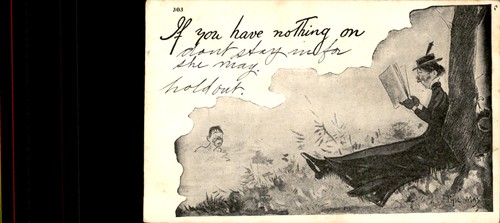 303
If you have nothing on
dont stay in for
she may
hold out.
PHIL MAY